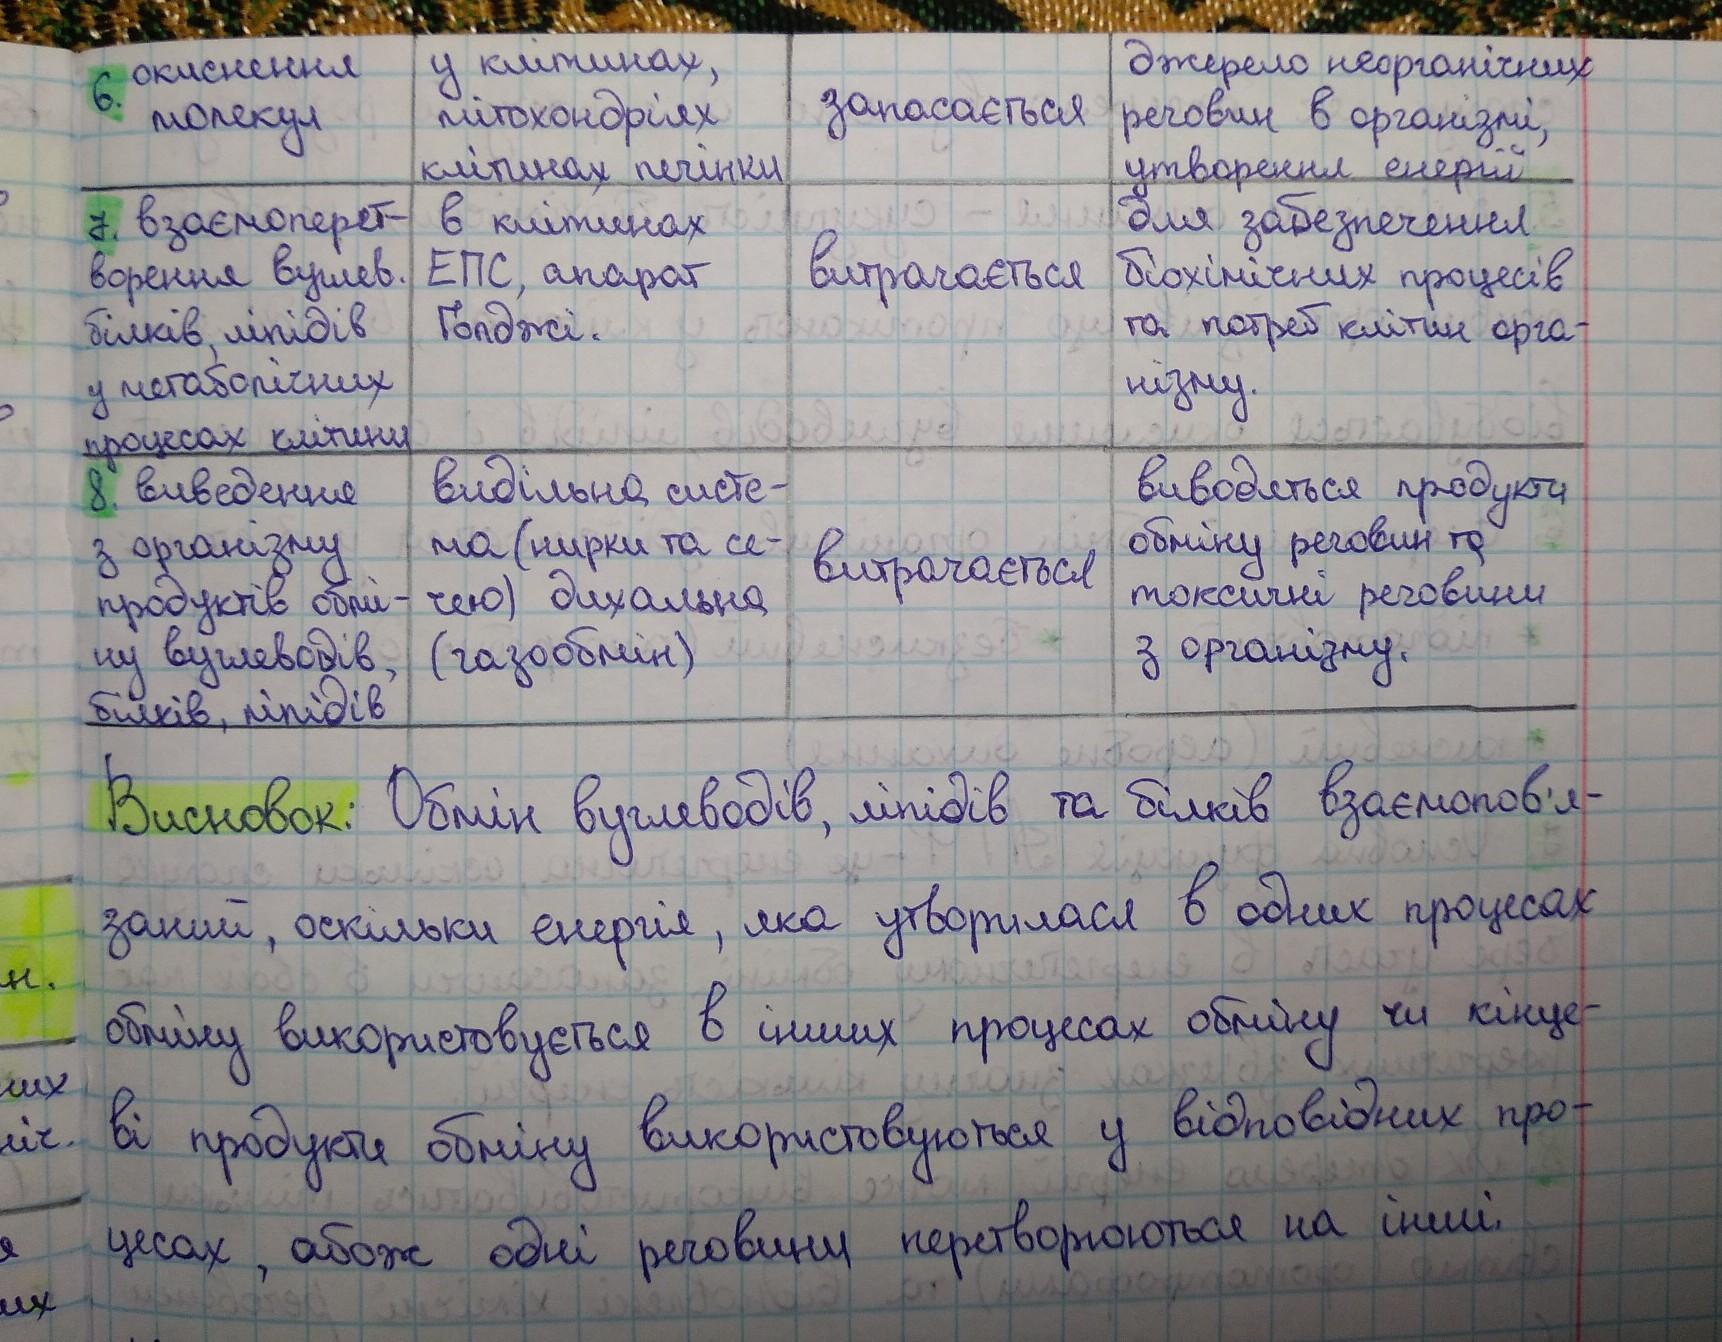 6. окиснення
молекул
у клітинах,
мітохондріях
клітинах печінки
запасається
джерело неорганічних
речовин в організмі,
утворення енергії
7. взаємоперет-
ворення вуглев.
білків, ліпідів
у метаболічних
процесах клітини
в клітинах
ЕПС, апарат
Гольджі.
витрачається
для забезпечення
біохімічних процесів
та потреб клітин орга-
нізму.
8. виведення
з організму
продуктів обмі-
ну вуглеводів,
білків, ліпідів
видільна систе-
ма (нирки та се-
чею) дихальна
(газообмін)
витрачається
виводяться продукти
обміну речовин та
токсичні речовини
з організму.
Висновок: Обмін вуглеводів, ліпідів та білків взаємопов'я-
заний, оскільки енергія, яка утворилася в одних процесах
обміну використовується в інших процесах обміну чи кінце-
ві продукти обміну використовуються у відповідних про-
цесах, абож одні речовини перетворюються на інші.
н.
них
ніч.
я
их